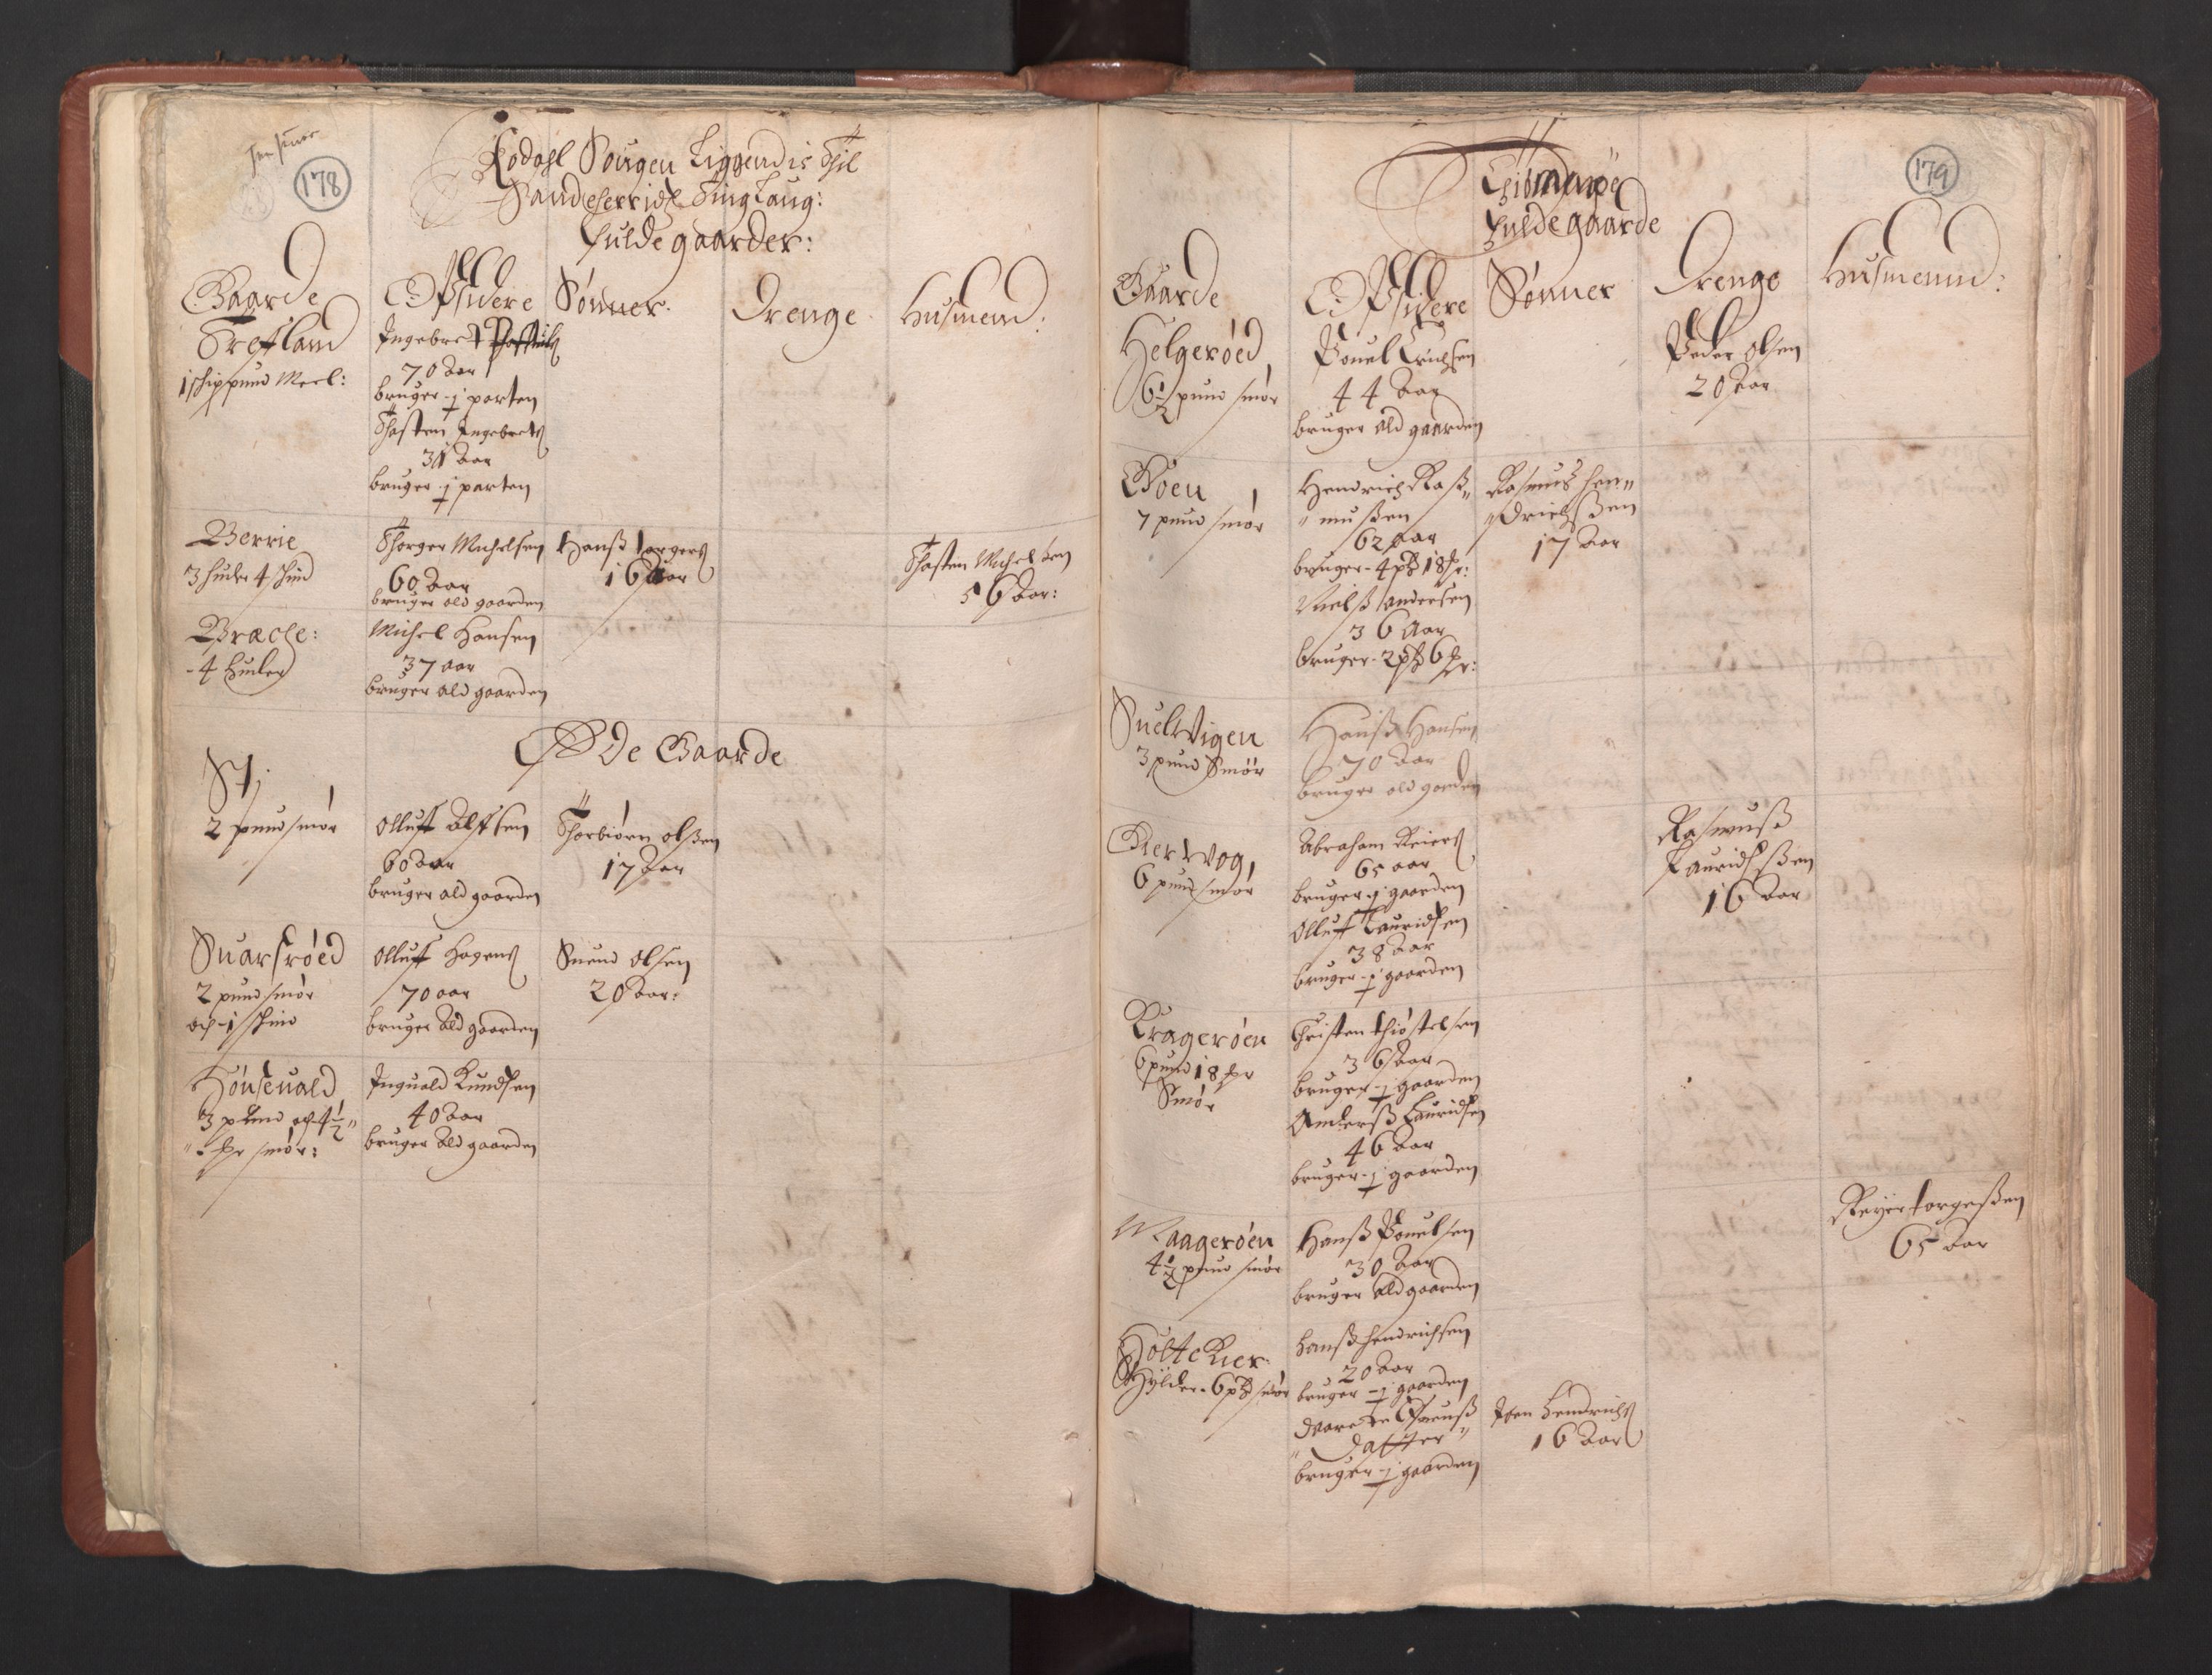 178
Kodahl Sougen Liggendis Thil
Sandeherridtz Ting Laug:
fulde gaarder:
Gaarde
Opsidere
Sønner.
Drenge
Husmend:
Trefland
1 schippund Meel:
Ingebret
70 Aar
bruger - j parten
Thosten Ingebrets
31 Aar
bruger - j parten
Berrie
3 huder 4 skind
Thorger Michelsen
60 Aar
bruger ald gaarden
Hanß torgers
16 Aar
Thosten Michelsen
56 Aar:
Bræche:
4 huder
Michel Hansen
37 aar
bruger ald gaarden
Øde Gaarde
2 pund smør
Olluff Alffsen
60 Aar
bruger ald gaarden
Thorbiørn olßen
17 Aar
Suarsrøed
2 pund smør
och 1 skind
Olluff Hagens
70 aar
bruger ald gaarden
Suend olsen
20 Aar:
Hønseuald
3 pund och 4 1/2
mr smør:
Inguald Knudsen
40 Aar
bruger ald gaarden
179
Thiømøe
fulde gaarde
Gaarde
Opsidere
Sønner
Drenge
Husmennd:
Helgerøed
6 1/2 pund smør
Pouel Erichsen
44 Aar
bruger ald gaarden
Peder olsen
20 Aar
Bøen
7 pund smør
Hendrich Raß„
„mußen
62 aar
bruger - 4 pd 18 mr:
Nielß andersen
36 Aar
bruger - 2 pd 6 mr:
Rasmus hen„
„drichßen
17 Aar
Suelvigen
3 pund Smør
Hanß Hansen
70 Aar
bruger ald gaarden
Kiervog
6 pund smør
Abraham Reiers
65 aar
bruger - j gaarden
Olluff Lauridsen
38 Aar
bruger - j gaarden
Rasmuß
Lauridsßen
16 Aar
Kragerøen
6 pund 18 mr
Smør
Christen thiøstelsen
36 Aar
bruger - j gaarden
Anderß Lauridsen
46 Aar
bruger - j gaarden
Maagerøen
4 1/2 pund smør
Hanß Pouelsen
30 Aar
bruger ald gaarden
Reyer torgeßen
65 Aar
Holtekier
Skylder - 6 pd smør
Hanß hendrichsen
20 Aar
bruger - j gaarden
„Datter„
bruger - j gaarden
Iffuer hendrichs
16 Aar